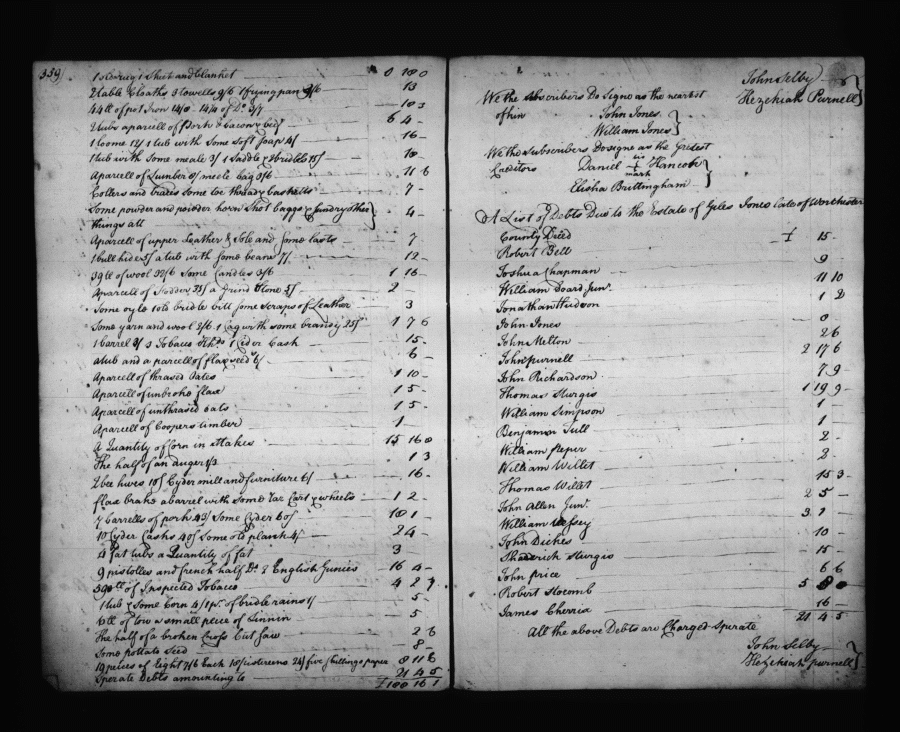 359
1 1 Sheet and blanket 0 18 0
2 table Cloaths 3 towells 9/6 1 frying pan 3/6 13
44 ll of pot Iron 14/8 14/4 of Do 3/7 10 3
2 tubs aparcell of Pork & bacon & beef 6 4 -
1 loome 12/ 1 tub with Some Soft Soap 4/ 16 -
1 tub with Some meale 3/ 1 Saddle & bridle 15/ 18 -
Aparcell of Lumber 8/ meele bag 3/6 11 6
Collers and traces Some hoe thread & baskets 7 -
Some powder and powder horn Shot baggs & Sundry other } 4 -
things all
Aparcell of upper Leather & Sole and Some lasts 7
1 bull hide 5/ a tub with Some beans 7/ 12 -
39 ll of wool 32/6 Some Candles 3/6 1 16 -
Aparcell of Fodder 35/ a Grind Stone 5/ 2 -
Some oyle 1 old bridle bitt Some Scraps of Leather 3
Some yarn and wool 2/6 1 Cag with some brandy 25/ 1 7 6
1 barrel 9/ 3 Tobacco Hhds 1 Cider Cask 15 -
a tub and a parcell of flaxseed 6/ 6 -
Aparcell of thrased Oates 1 10 -
Aparcell of unbroke flax 1 5 -
Aparcell of unthrased oats 1 5 -
Aparcell of Coopers timber 1 -
A Quantity of Corn in Stakes 15 16 0
The half of an auger 1/3 1 3
2 bee hives 10/ Cyder mill and furniture 6/ 16 -
flax brake a barrel with Some Tar Cart & wheels 1 2 -
7 barrells of pork 43/ Some Cyder 60/ 18 1 -
10 Cyder Casks 40/ Some old plank 4/ 2 4 -
4 fat tubs a Quantity of fat 3
9 pistolles and french half Do 2 English Ginies 16 4 -
590 ll of Inspected Tobacco 4 2 7
1 tub & Some Corn 4/ 1 pr of bridle rains 1/ 5 -
6 ll of tow a small piece of Linnin 5
The half of a broken Cross Cut Saw 2 6
Some pottato Seed 8 -
19 pieces of Eight 7/6 Each 24/ five Shillings paper 8 11 6
Sperate Debts amounting to 21 4 5
£ 180 16 1
John Selby }
Hezekiah Purnell
We the Subscribers Do Signe as the nearest
of kin John Jones }
William Jones
We the Subscribers Do signe as the Gretest
Creditors Daniel his + mark Hancock }
Elisha Brittingham
A List of Debts Due to the Estate of Giles Jones late of Worchester
County Dited £ 15 -
Robert Bell 9
Joshua Chapman 11 10
William Doard Junr. 1 2
Jonathan Hudson
John Jones 8
John Melton 2 6
John purnell 2 17 6
John Richardson 7 9
Thomas Sturgis 1 19 9
William Simpson 1
Benjamin Tull 1
William 2 -
William Willet 2 -
Thomas Willet 15 3
John Allen Junr. 2 5 -
William 3 1 -
John Dickes 10 -
Shadrich Sturgis 15 -
John price 6 6
Robert Slocomb 5 8 0
James Cherrix 16 -
21 4 5
All the above Debts are Charged Sperate
John Selby }
Hezekiah purnell